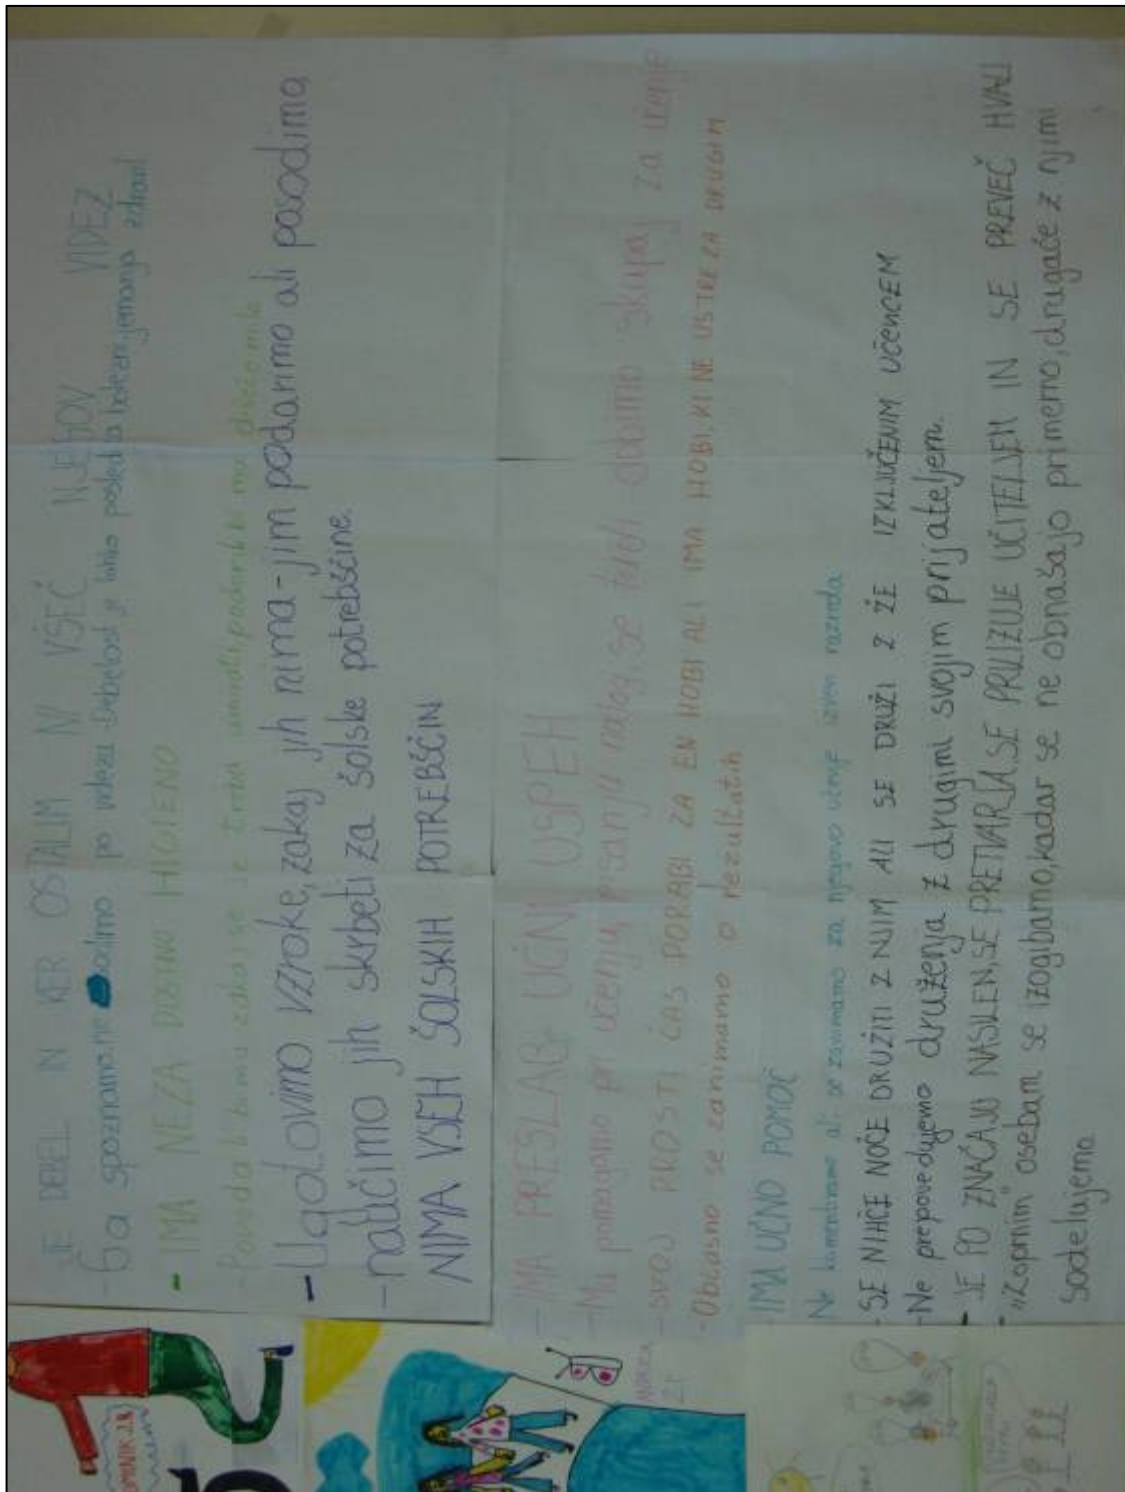 JE DEBEL IN KER OSTALIM NI VŠEČ NJEGOV VIDEZ
- Ga spoznamo, ne sodimo po videzu. Debelost je lahko posledica bolezni, jemanja zdravil
- IMA NEZADOSTNO HIGIENO
- Poveda bi mu zakaj se
- Ugotovimo vzroke, zakaj jih nima - jim podarimo ali posodimo,
- naučimo jih skrbeti za šolske potrebščine.
NIMA VSEH ŠOLSKIH POTREBŠČIN
- IMA PRESLAB UČNI USPEH
- Mu pomagamo pri učenju, pisanju nalog, se tudi dobimo skupaj za učenje
- SVOJ PROSTI ČAS PORABI ZA EN HOBI ALI IMA HOBI, KI NE USTREZA DRUGIM
- Občasno se zanimamo o rezultatih
- IMA UČNO POMOČ
Ne komentiramo ali se zanimamo za njegovo učenje izven razreda
- SE NIHČE NOČE DRUŽITI Z NJIM ALI SE DRUŽI Z ŽE IZKLJUČENIM UČENCEM
- Ne prepovedujemo druženja z drugimi svojim prijateljem.
- JE PO ZNAČAJU NASILEN, SE PRETVARJA, SE PRILIZUJE UČITELJEM IN SE PREVEČ HVALI
- "Zopnim" osebam se izogibamo, kadar se ne obnašajo primerno, drugače z njimi
sodelujemo.
DOMINIK 2.R.